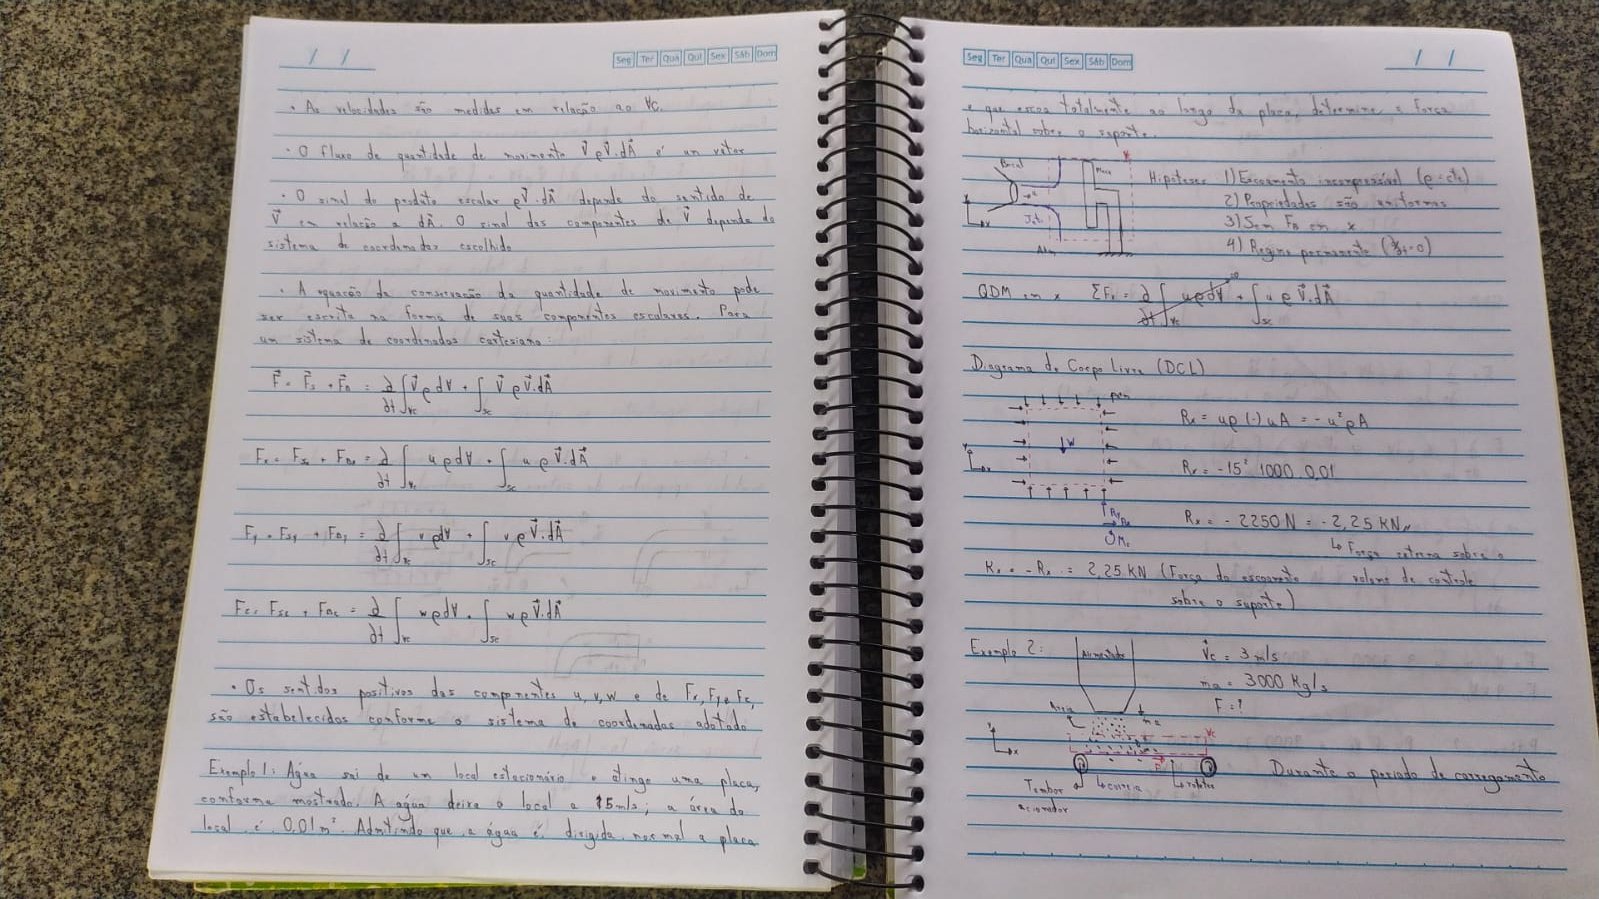 / /
Seg Ter Qua Qui Sex Sáb Dom
• As velocidades são medidas em relação ao VC.
• O fluxo de quantidade de movimento V⃗ ρV⃗.dA⃗ é un vetor
• O sinal do produto escalar ρV⃗.dA⃗ depende do sentido de
V⃗ em relação a dA⃗. O sinal das componentes de V⃗ depende do
sistema de coordenadas escolhido
• A equação da conservação da quantidade de movimento pode
ser escrita na forma de suas componentes escalares. Para
um sistema de coordenadas cartesiano:
F⃗ = F⃗s + F⃗B = ∂/∂t ∫VC V⃗ρdV + ∫SC V⃗ ρV⃗.dA⃗
Fx = FSx + FBx = ∂/∂t ∫VC uρdV + ∫SC u ρV⃗.dA⃗
Fy = FSy + FBy = ∂/∂t ∫VC vρdV + ∫SC vρV⃗.dA⃗
Fz = FSz + FBz = ∂/∂t ∫VC wρdV + ∫SC wρV⃗.dA⃗
• Os sentidos positivos das componentes u, v, w e de Fx, Fy e Fz,
são estabelecidos conforme o sistema de coordenadas adotado
Exemplo 1: Água sai de um local estacionário e atinge uma placa,
conforme mostrado. A água deixa o local a 15m/s; a área do
local é 0,01m². Admitindo que a água é dirigida normal a placa
Seg Ter Qua Qui Sex Sáb Dom
/ /
e que escoa totalmente ao longo da placa, determine a força
horizontal sobre o suporte.
Bocal
Placa
Jato
y
x
Hipóteses 1) Escoamento incompressível (ρ = cte)
2) Propriedades são uniformes
3) Sem FB em x
4) Regime permanente (∂/∂t=0)
QDM em x ΣFx = ∂/∂t ∫VC uρdV + ∫SC u ρ V⃗.dA⃗
Diagrama de Corpo Livre (DCL)
patm
W
y
x
Ry
Rx
Rx = uρ(-)uA = -u²ρA
Rx = -15² 1000 0,01
Rx = -2250N = -2,25KN
↳ Força externa sobre o
volume de controle
Kx = -Rx = 2,25KN (Força do escoamento
sobre o suporte)
Exemplo 2:
Alimentador
Vc = 3m/s
ma = 3000 Kg/s
F = ?
Areia
ma
VC
y
x
F
Tambor
acionador
↳ correia
↳ roletes
Durante o período de carregamento